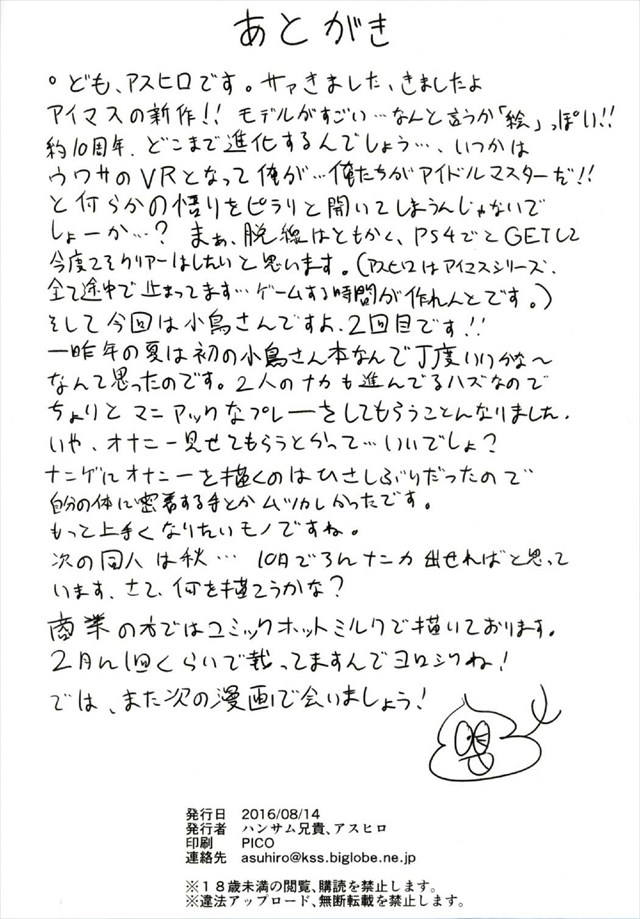 あとがき
。ども、アスヒロです。サァきました、きましたよ
アイマスの新作!! モデルがすごい…なんと言うか「絵」っぽい!!
約10周年、どこまで進化するんでしょう…、いつかは
ウワサのVRとなって俺が…俺たちがアイドルマスターだ!!
と何らかの悟りをピラリと開いてしまうんじゃないで
しょーか…? まぁ、脱線はともかく、PS4ごとGETして
今度こそクリアーはしたいと思います。(アスヒロはアイマスシリーズ、
全て途中で止まってます…ゲームする時間が作れんとです。)
そして今回は小鳥さんですよ、2回目です!!
一昨年の夏は初の小鳥さん本なんで丁度いいかな〜
なんて思ったのです。2人のナカも進んでるハズなので
ちょりとマニアックなプレーをしてもらうことんなりました。
いや、オナニー見せてもらうとかって…いいでしょ?
ナニゲにオナニーを描くのはひさしぶりだったので
自分の体に密着する手とかムツカしかったです。
もっと上手くなりたいモノですね。
次の同人は秋… 10月ごろんナニカ出せればと思って
います、さて、何を描こうかな?
商業の方ではコミックホットミルクで描いております。
2月に1回くらいで載ってますんでヨロシクね!
では、また次の漫画で会いましょう!
発行日 2016/08/14
発行者 ハンサム兄貴、アスヒロ
印刷 PICO
連絡先 asuhiro@kss.biglobe.ne.jp
※18歳未満の閲覧、購読を禁止します。
※違法アップロード、無断転載を禁止します。